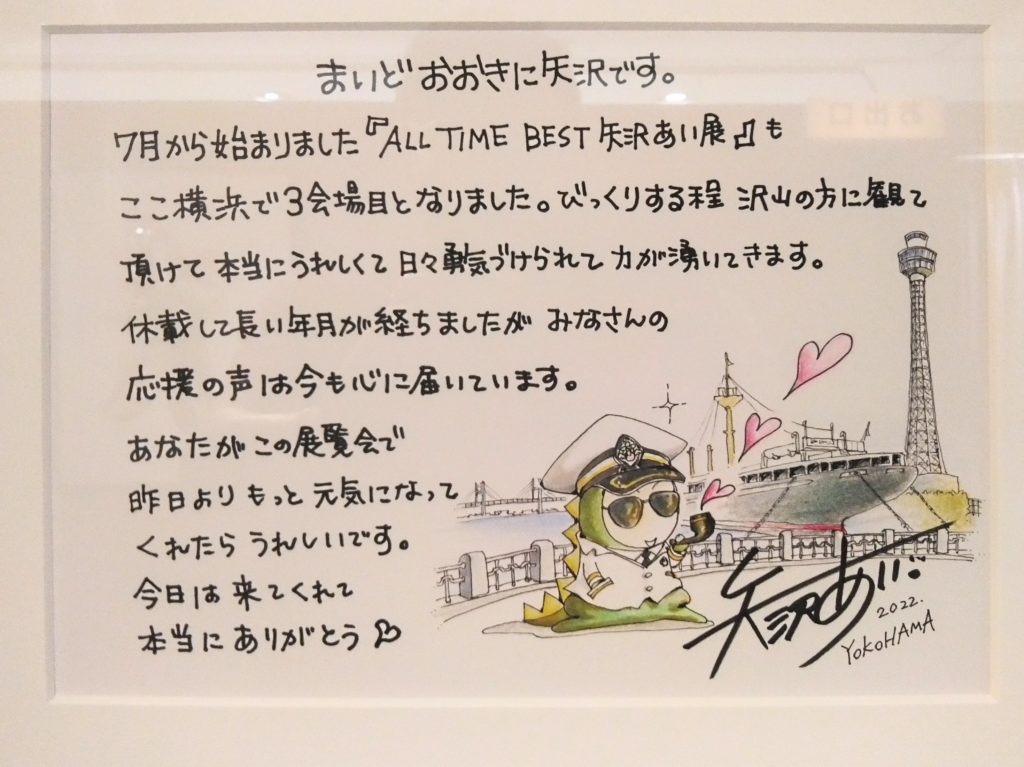 まいど おおきに 矢沢です。
7月から始まりました『ALL TIME BEST 矢沢あい展』も
ここ横浜で3会場目となりました。びっくりする程 沢山の方に観て
頂けて 本当にうれしくて 日々勇気づけられて 力が湧いてきます。
休載して長い年月が経ちましたが みなさんの
応援の声は今も心に届いています。
あなたが この展覧会で
昨日より もっと 元気になって
くれたら うれしいです。
今日は 来てくれて
本当に ありがとう♡
矢沢あい
2022.
YOKOHAMA
お出口